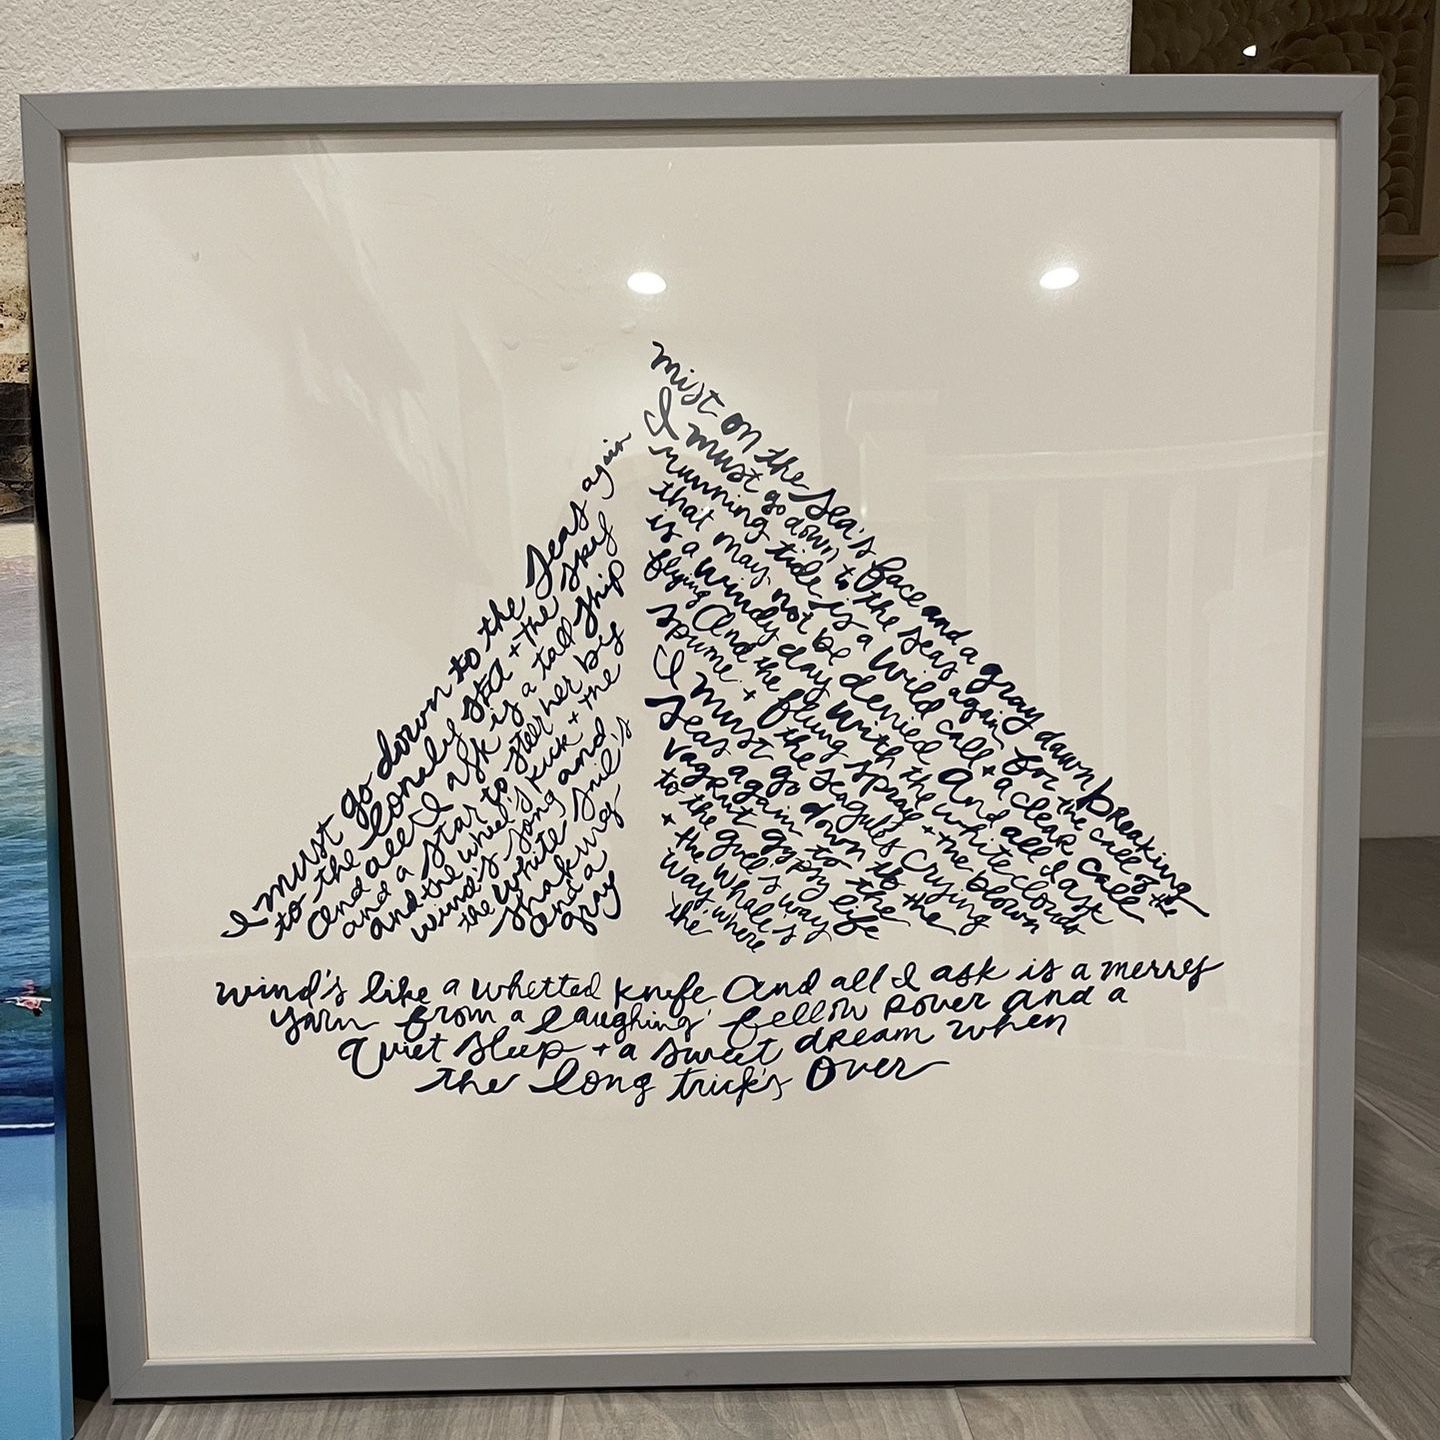 I must go down to the seas again
to the lonely sea + the sky
And all I ask is a tall ship
and a star to steer her by
and the wheel's kick + the
wind's song and
the white sail's
shaking
and a
gray
mist on the sea's face and a gray dawn breaking
I must go down to the seas again for the call of the
running tide is a wild call + a clear call
that may not be denied And all I ask
is a windy day with the white clouds
flying And the flung spray + the blown
spume + the seagulls crying
I must go down to the
seas again to the
vagrant gypsy life
to the gull's way
+ the whale's way
way where
the
wind's like a whetted knife And all I ask is a merry
yarn from a laughing fellow rover And a
Quiet sleep + a sweet dream when
the long trick's over